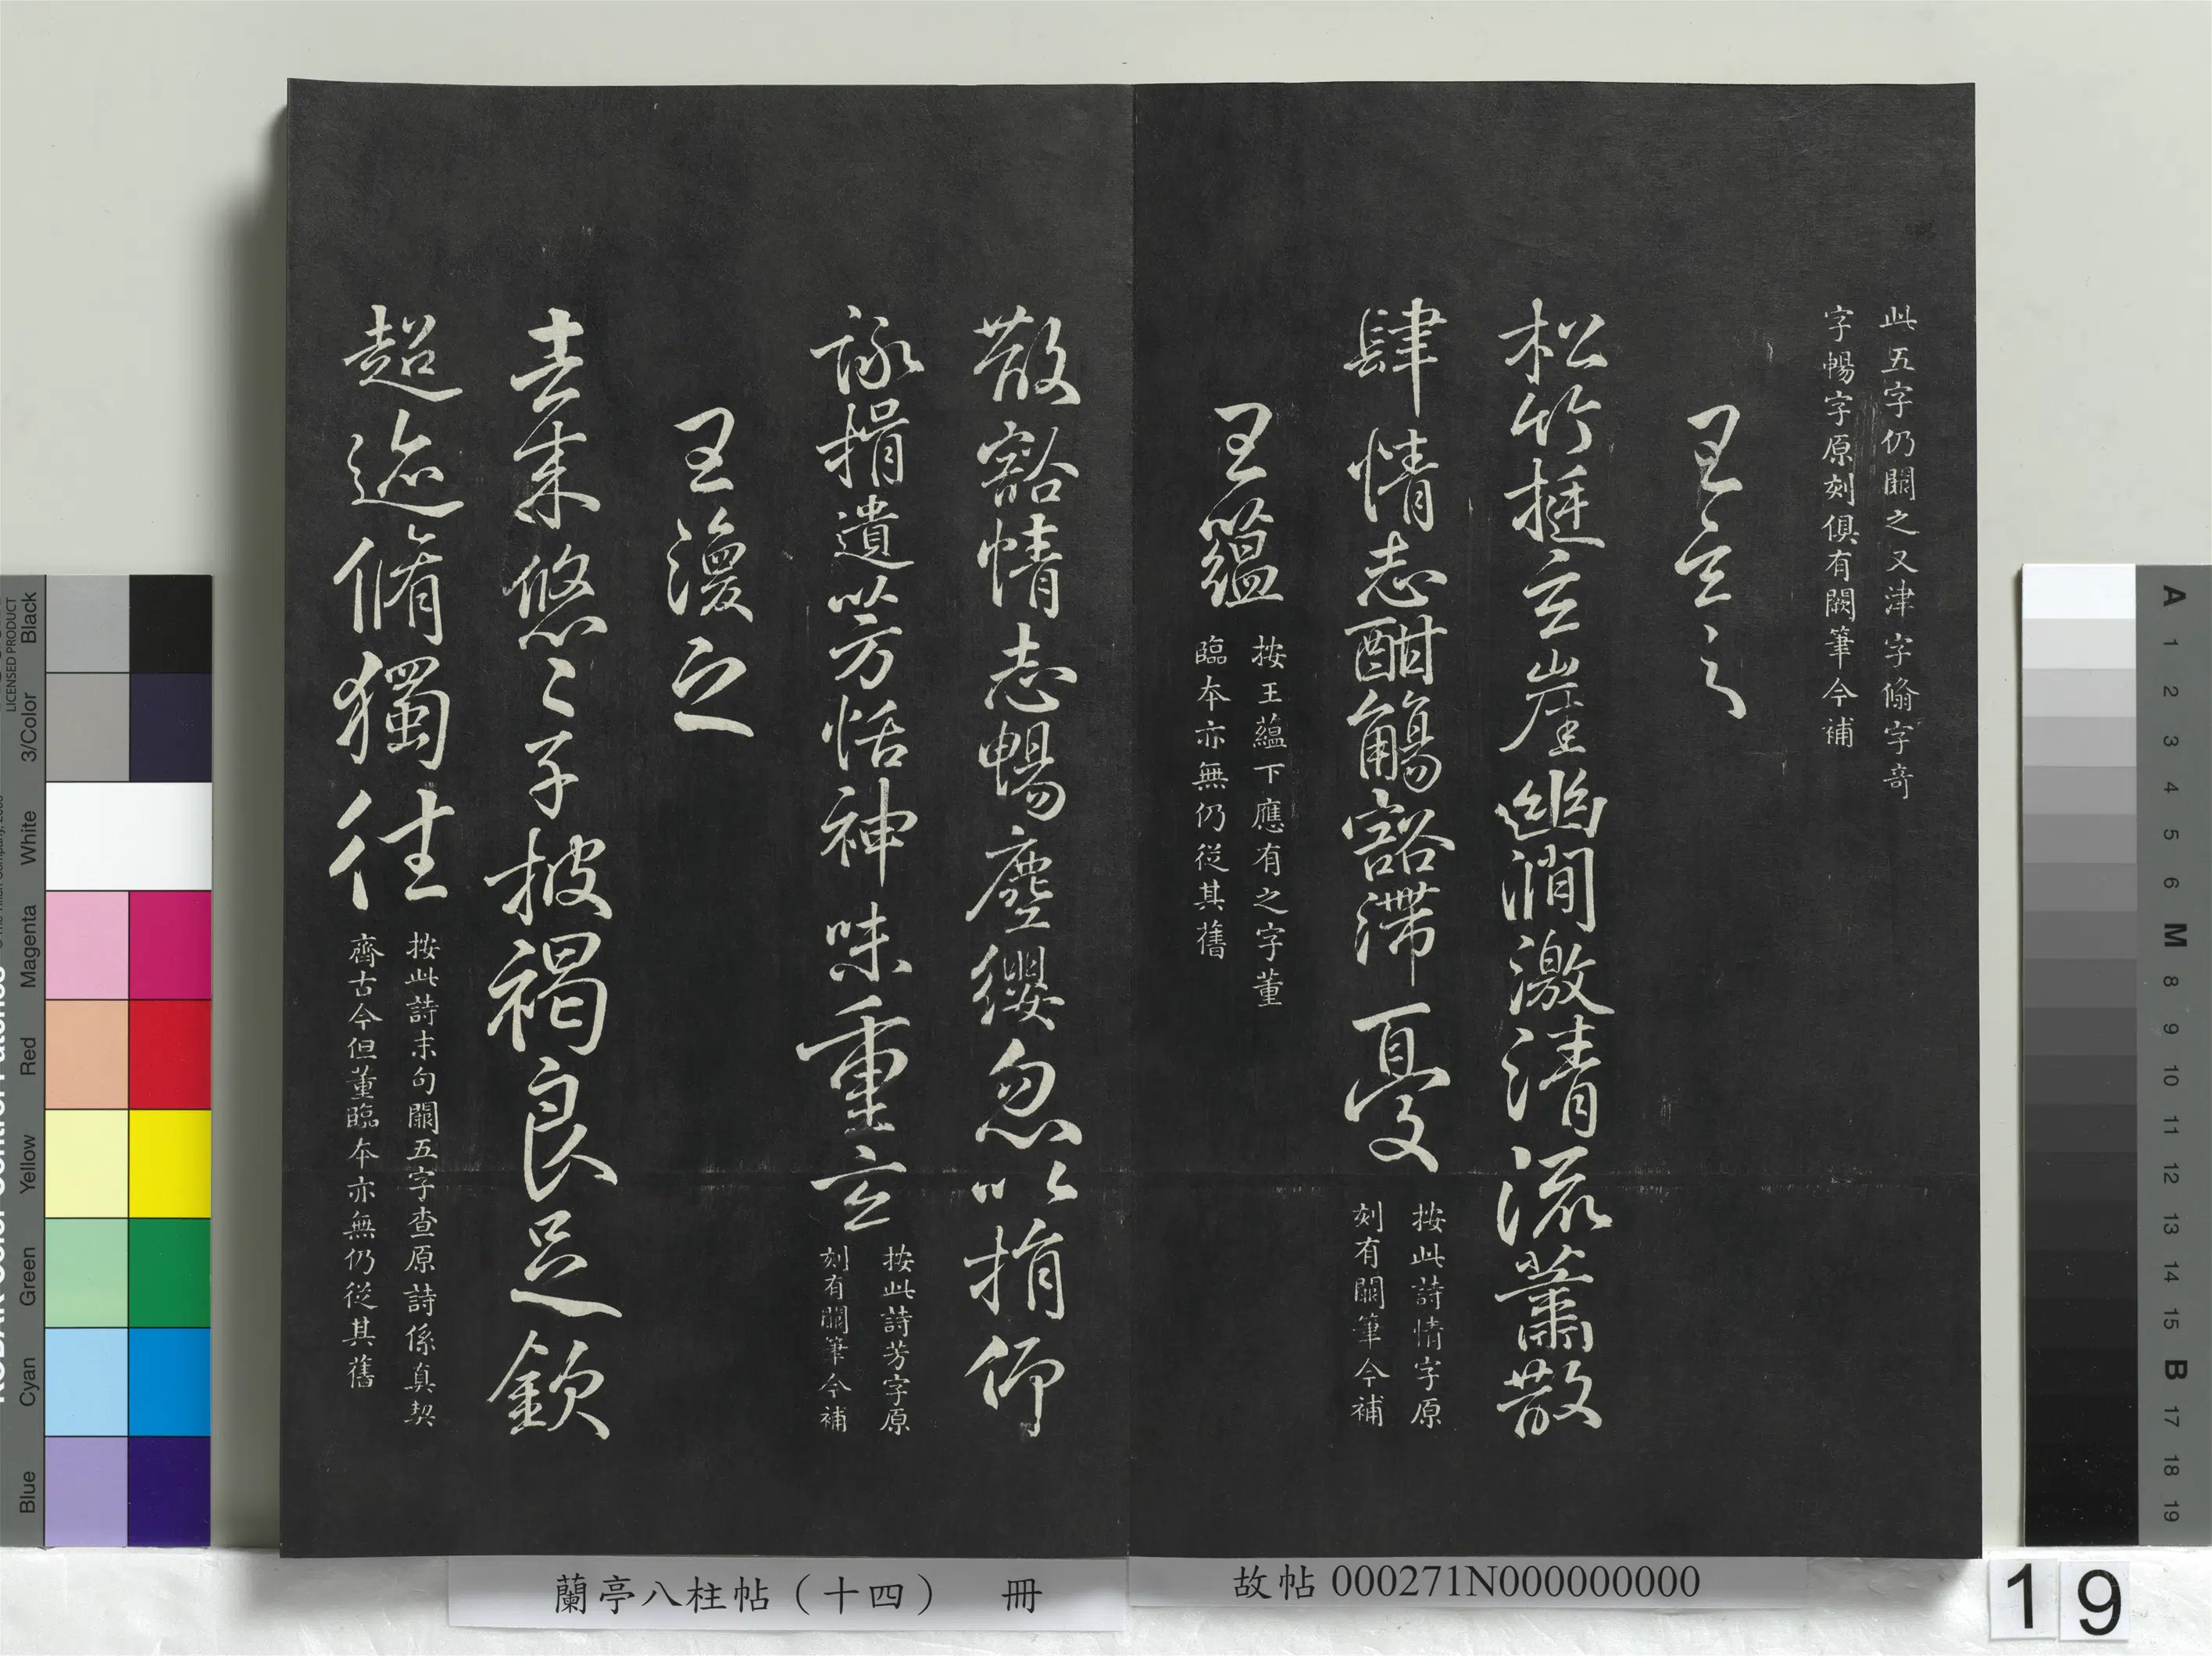 此五字仍闕之又津字脩字奇
字暢字原刻俱有闕筆今補
王玄之
松竹挺玄崖幽澗激清流蕭散
肆情志酣觴豁滯憂
按此詩情字原
刻有闕筆今補
王蘊
按王蘊下應有之字董
臨本亦無仍從其舊
散豁情志暢塵纓忽以捐仰
詠揖遺芳恬神味重玄
按此詩芳字原
刻有闕筆今補
王渙之
去來悠〻子披褐良足欽
超迹脩獨往
按此詩末句闕五字查原詩係真契
齊古今但董臨本亦無仍從其舊
蘭亭八柱帖（十四） 冊
故帖 000271N000000000
19
Blue Cyan Green Yellow Red Magenta White 3/Color Black
LICENSED PRODUCT
A 1 2 3 4 5 6 M 8 9 10 11 12 13 14 15 B 17 18 19